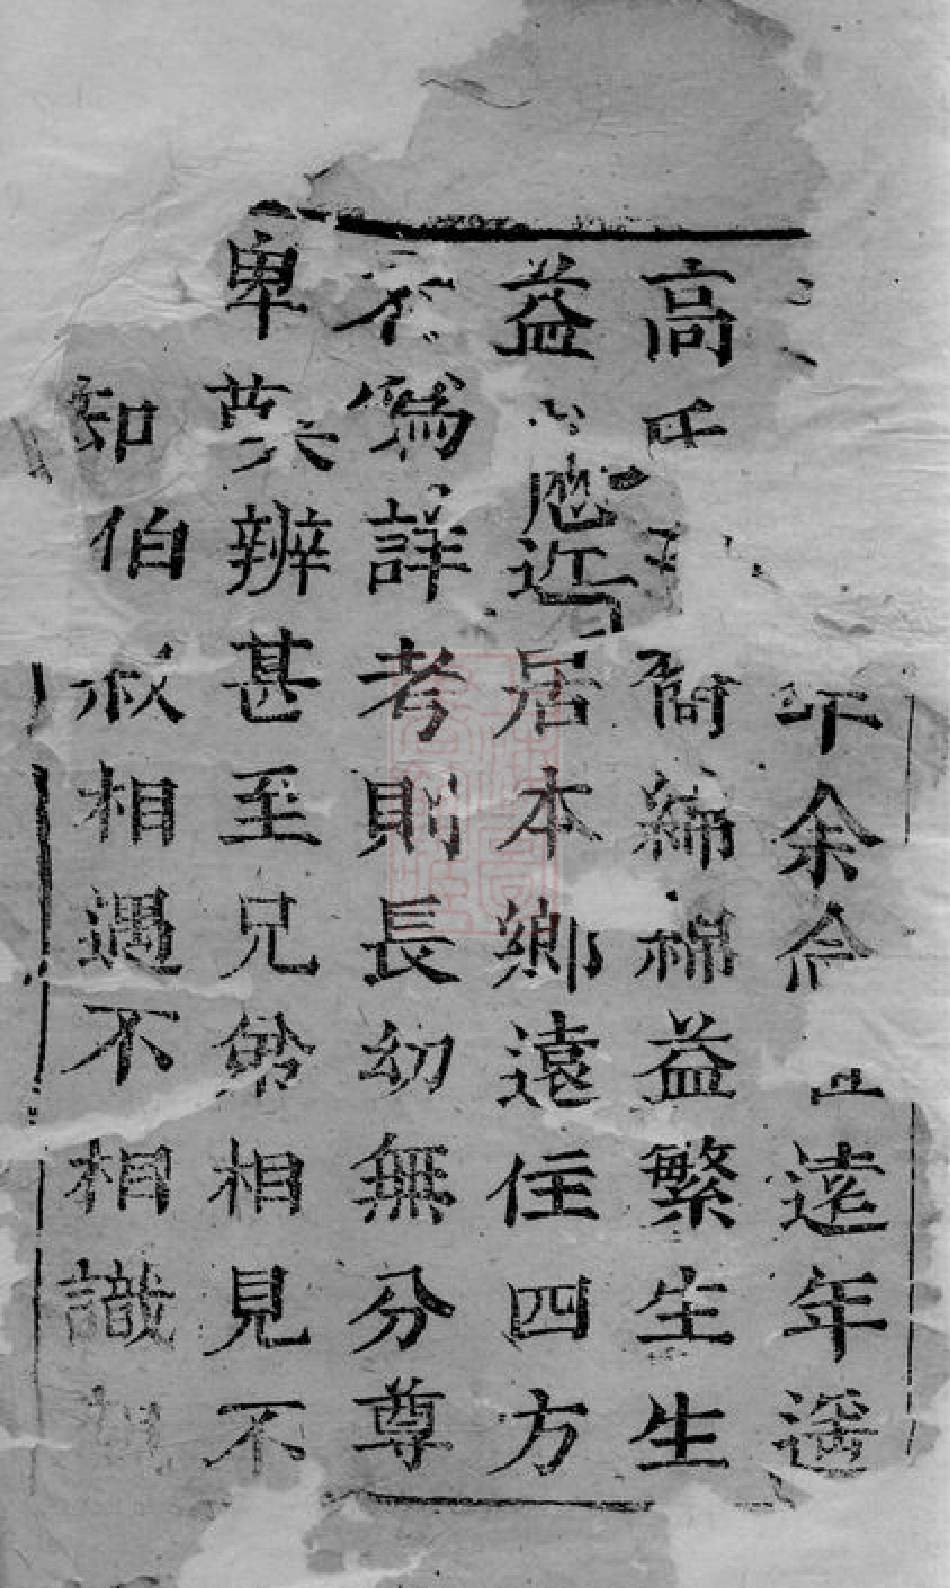 年余合世遠年遥
高氏裔綿綿益繁生生
益應近居本鄉遠住四方
不為詳考則長幼無分尊
卑莫辨甚至兄弟相見不
知伯叔相遇不相識